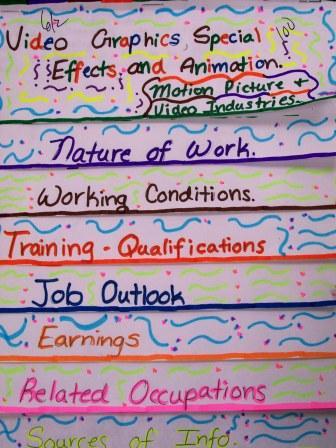 6/2
100
Video Graphics Special
Effects and Animation.
Motion Picture +
Video Industries.
Nature of Work.
Working Conditions.
Training - Qualifications
Job Outlook
Earnings
Related Occupations
Sources of Info